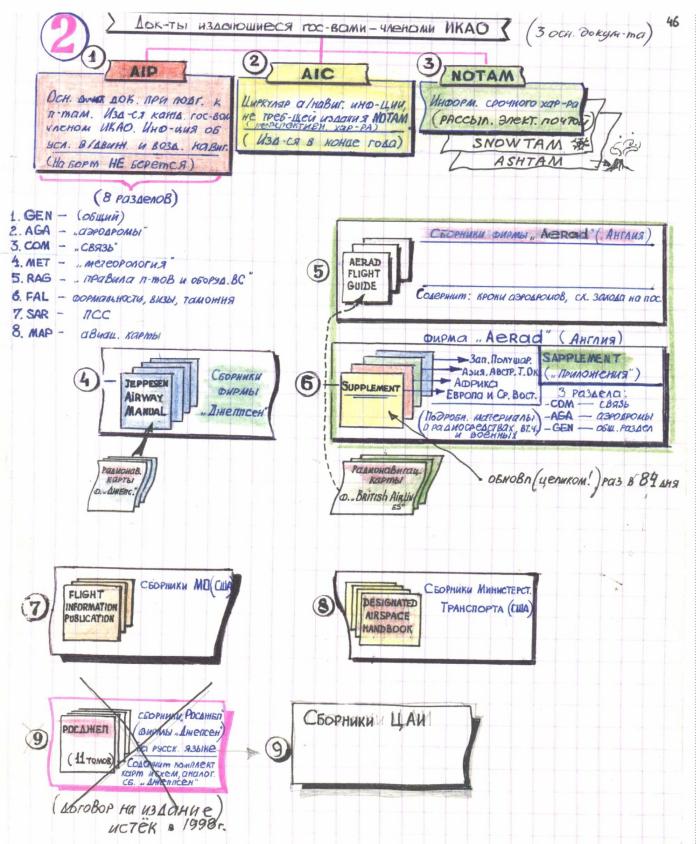 46
2
Док-ты издающиеся гос-вами-членами ИКАО
(3 осн. докум-та)
1
AIP
Осн. док. при подг. к
п-там. Изд-ся кажд. гос-вом
членом ИКАО. Инф-ция об
усл. в/движ. и возд. навиг.
(На борт НЕ берется)
2
AIC
Циркуляр а/навиг. инф-ции,
не треб-щей издания NOTAM
(перспективн. хар-ра)
(Изд-ся в конце года)
3
NOTAM
Информ. срочного хар-ра
(рассыл. элект. почтой)
SNOWTAM
ASHTAM
(8 разделов)
1. GEN – (общий)
2. AGA – „аэродромы"
3. COM – „связь"
4. MET – „метеорология"
5. RAG – „правила п-тов и оборуд. ВС"
6. FAL – формальности, визы, таможня
7. SAR – ПСС
8. MAP – авиац. карты
4
JEPPESEN
AIRWAY
MANUAL
Сборники
фирмы
„Джеппсен"
Радионав.
карты
ф. „Джепс."
5
AERAD
FLIGHT
GUIDE
Сборники фирмы „Aerad" (Англия)
Содержит: кроки аэродромов, сх. захода на пос.
фирма „Aerad" (Англия)
6
SUPPLEMENT
Зап. Полушар.
Азия, Австр. Т. Ок.
Африка
Европа и Ср. Вост.
SAPPLEMENT
(„Приложения")
3 раздела:
-COM — связь
-AGA — аэродромы
-GEN — общ. раздел
(Подробн. материалы
о радиосредствах, вт.ч.
и военных
Радионавигац.
карты
ф. „British Airlin
es"
обновл (целиком!) раз в 84 дня
7
FLIGHT
INFORMATION
PUBLICATION
Сборники МО (США)
8
DESIGNATED
AIRSPACE
HANDBOOK
Сборники Министерст.
Транспорта (США)
9
РОСДЖЕП
(11 томов)
Сборники „Росджеп"
(фирмы „Джепсен")
на русск. языке
Содержит комплект
карт и схем, аналог.
сб. „Джеппсен"
(договор на издание)
истёк в 1998г.
9
Сборники ЦАИ